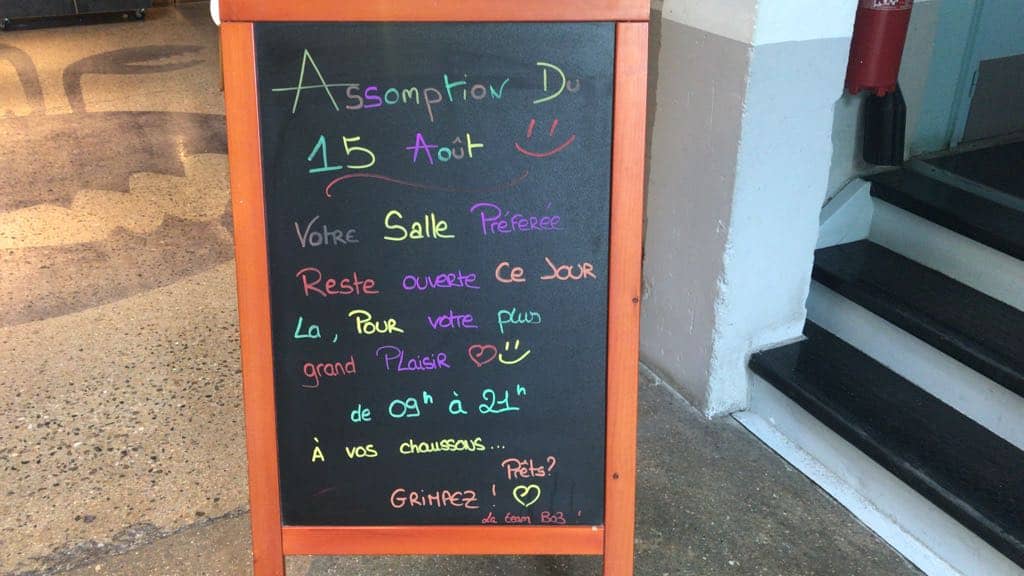 Assomption Du
15 Août
Votre Salle Préferée
Reste ouverte Ce Jour
La, Pour votre plus
grand Plaisir
de 09h à 21h
À vos chaussons...
Prêts?
GRIMPEZ !
La team Bo3 !